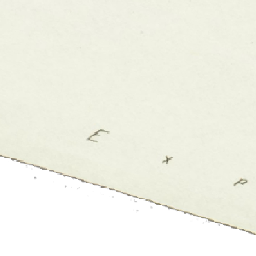 E x p